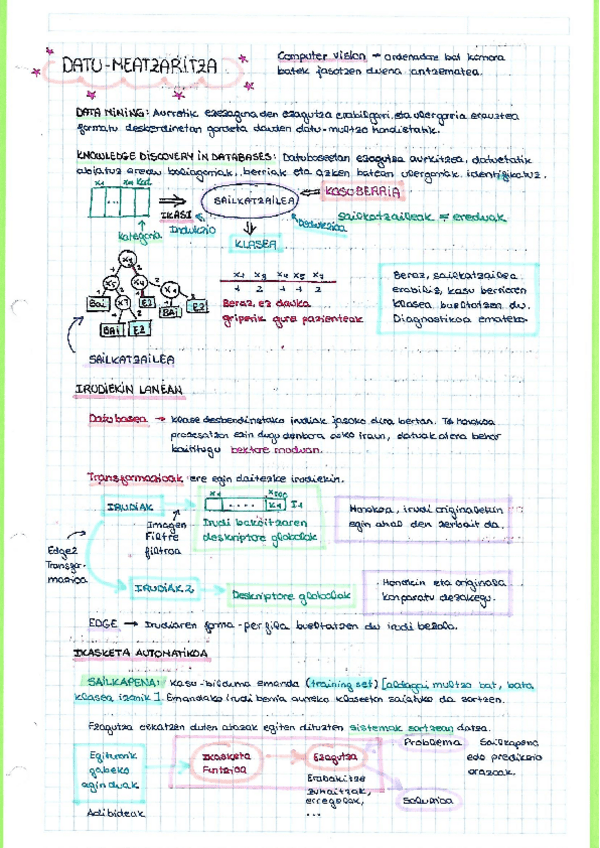 DATU-MEATZARITZA
Computer vision → ordenadore bat kamera
batek jasotzen duena antzematea.
DATA MINING: Aurretik ezezaguna den ezagutza erabilgarri eta ulergarria erauztea
formatu desberdinetan gordeta dauden datu-multzo handietatik.
KNOWLEDGE DISCOVERY IN DATABASES: Datubaseetan ezagutza aurkitzea, datuetatik
abiatuz eredu baliagarriak, berriak eta azken batean ulergarriak identifikatuz.
X1 Xn Kat
SAILKATZAILEA
KASU BERRIA
IKASI
Indukzio
Dedukzioa
sailkatzaileak = ereduak
kategoria
KLASEA
X3
X4
X7
X1
BAI
EZ
EZ
BAI
EZ
1 2 1 2
Beraz, ez dauka
griperik gure pazienteak
Beraz, sailkatzailea
erabiliz, kasu berriaren
klasea bueltatzen du.
Diagnostikoa emateko
SAILKATZAILEA
IRUDIEKIN LANEAN
Datubasea → klase desberdinetako irudiak jasoko dira bertan.
prozesatzen ezin dugu denbora asko iraun, datuak atera behar
ditugu bektore moduan.
Transformazioak ere egin daitezke irudiekin.
IRUDIAK
X1
.....
I1
Imagen
Filtre
filtroa
Irudi bakoitzaren
deskriptore globalak
Honekoa, irudi originalekin
egin ahal den zerbait da.
Edge2
Transfor-
mazioa
IRUDIAK2
Deskriptore globalak
Honekin eta originala
konparatu dezakegu.
EDGE → Irudiaren forma-perfila bueltatzen du irudi bezala.
IKASKETA AUTOMATIKOA
SAILKAPENA: Kasu-bilduma emanda (training set) [aldagai multzo bat, bata
klasea izanik]. Emandako irudi berria aurreko klaseetan saiatuko da sartzen.
Ezagutza eskatzen duten atazak egiten dituzten sistemak sortzean datza.
Egiturarik
gabeko
eginduak
Adibideak
Ikasketa
Funtzioa
Ezagutza
Erabakitze
zuhaitzak,
erregelak,
...
Problema
Soluzioa
Sailkapena
edo predikzio
arazoak.